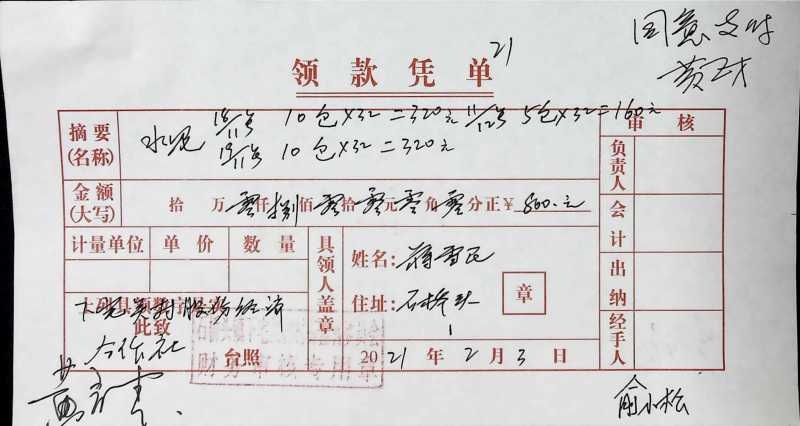 同意支付
21
领款凭单
摘要
(名称)
水泥
18/11号 10包×32=320元 11/12号 5包×32=160元
19/11号 10包×32=320元
审核
负责人
会计
出纳
经手人
金额
(大写)
拾 万 零仟 捌佰 零拾 零元 零角 零分正¥ 800.元
计量单位 单价 数量
具领人盖章
姓名:
住址:石桥头
章
股份经济
此致
合作社
台照
财务审核专用章
2021年2月3日
俞小松